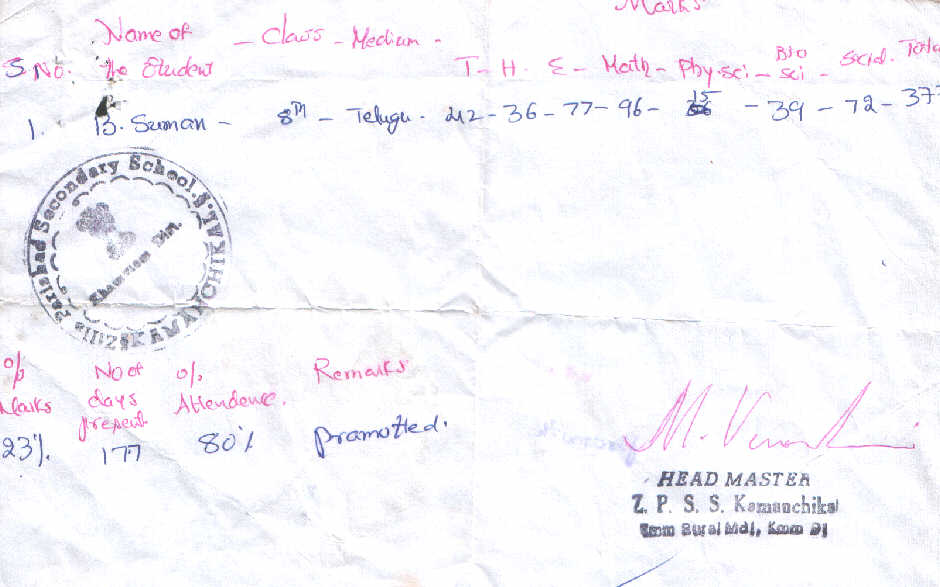 Marks
Name of - Class - Medium -
S No. the Student T - H - E - Math - Phy.sci - Bio sci - Social. Tota
1. B. Suman - 8th - Telugu. 42 - 36 - 77 - 96 - 15 - 39 - 72 - 377
Zilla Parishad Secondary School. KAMANCHIKAL
Khammam Dist.
% No of % Remarks
Marks days Attendence.
present
23%. 177 80% pramotted.
HEAD MASTER
Z. P. S. S. Kamanchikal
Kmm Rural Mdl, Kmm Dt